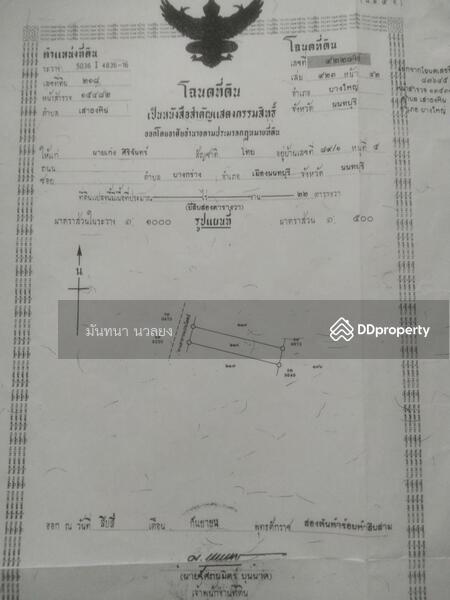 ตำแหน่งที่ดิน
ระวาง 5036 I 4836-16
เลขที่ดิน ๒๑๘
หน้าสำรวจ ๑๕๔๘๒
ตำบล เสาธงหิน
โฉนดที่ดิน
เลขที่
เล่ม ๔๒๓ หน้า ๔๒
อำเภอ บางใหญ่
จังหวัด นนทบุรี
โฉนดที่ดิน
เป็นหนังสือสำคัญแสดงกรรมสิทธิ์
ออกโดยอาศัยอำนาจตามประมวลกฎหมายที่ดิน
ให้แก่ นายเก่ง ศิริจันทร์ สัญชาติ ไทย อยู่บ้านเลขที่ ๘๙/๑ หมู่ที่ ๕
ถนน
ซอย ตำบล บางกร่าง อำเภอ เมืองนนทบุรี จังหวัด นนทบุรี
ที่ดินแปลงนี้มีเนื้อที่ประมาณ ไร่ งาน ๒๒ ตารางวา
(ยี่สิบสองตารางวา)
มาตราส่วนในระวาง ๑: ๑๐๐๐ รูปแผนที่ มาตราส่วน ๑: ๕๐๐
น
มันทนา นวลยง
DDproperty
๒๑๙
๒๑๗
ออก ณ วันที่ สิบสี่ เดือน กันยายน พุทธศักราช สองพันห้าร้อยห้าสิบสาม
เจ้าพนักงานที่ดิน